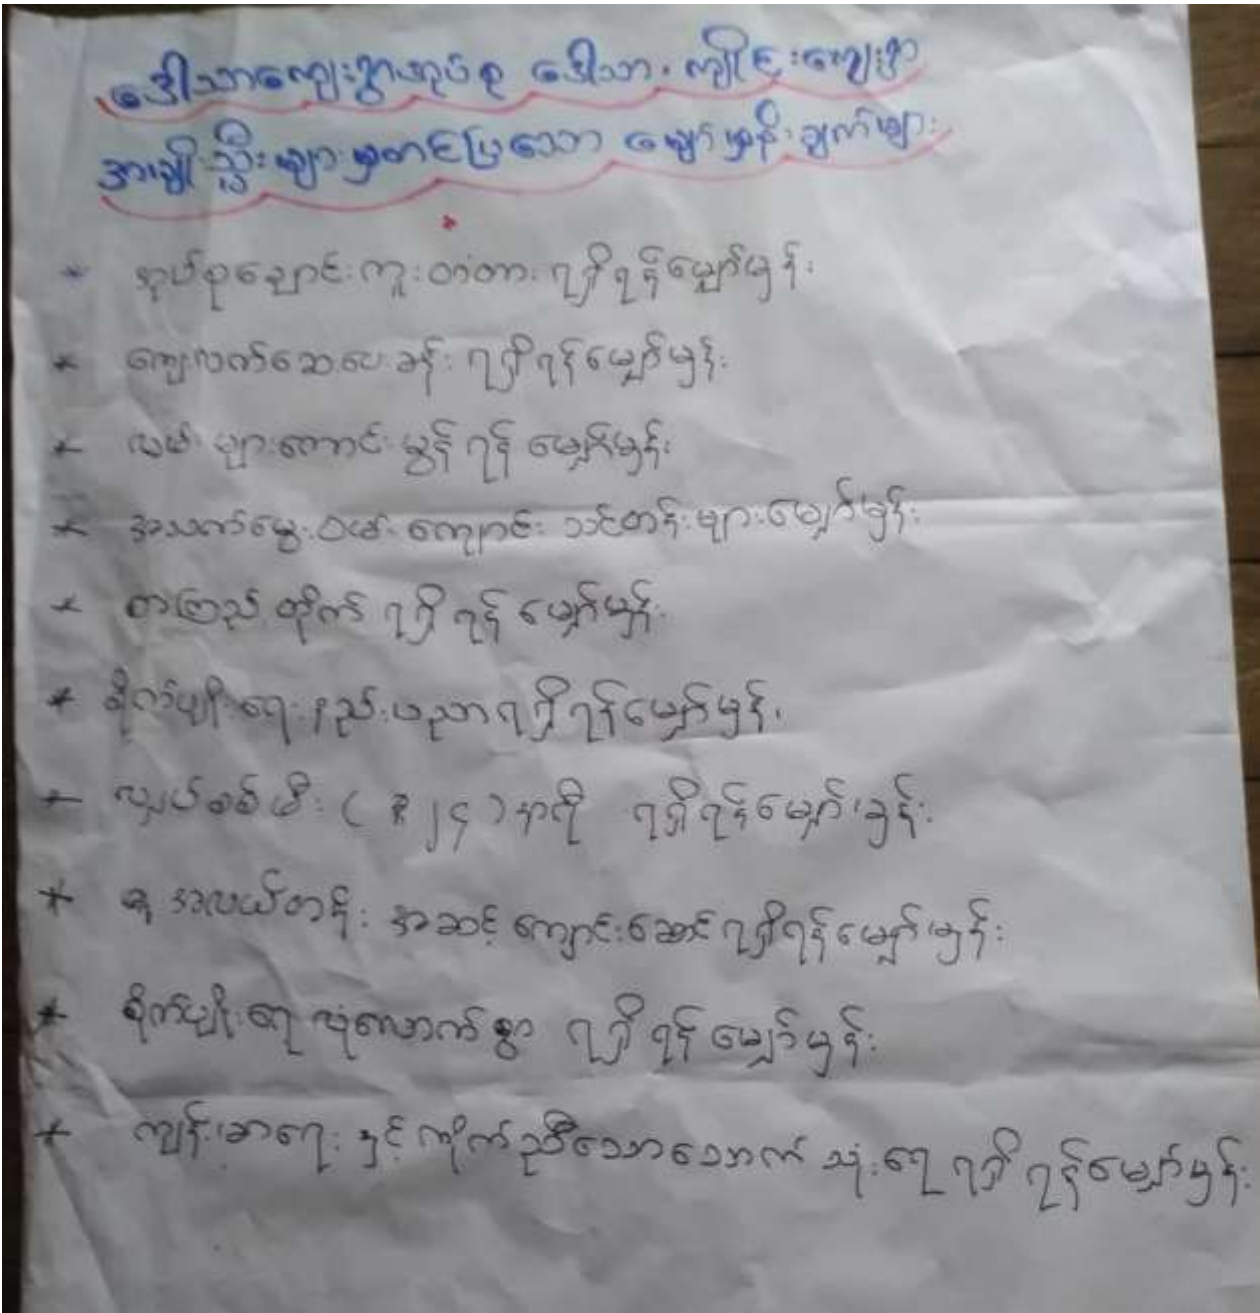 ဒေါ်သာကျေးရွာအုပ်စု ဒေါ်သာ၊ ကျိုင်းကျေးရွာ
အမျိုးသ္မီးများမှတင်ပြသော မျှော်မှန်းချက်များ
* အုပ်စုချောင်းကူးတံတား ရရှိရန်မျှော်မှန်း
* ကျေးလက်ဆေးပေးခန်း ရရှိရန်မျှော်မှန်း
* လမ်းများကောင်းမွန်ရန် မျှော်မှန်း
* အသက်မွေးဝမ်းကျောင်း သင်တန်းများမျှော်မှန်း
* စာကြည့်တိုက် ရရှိရန် မျှော်မှန်း
* စိုက်ပျိုးရေးနည်းပညာရရှိရန်မျှော်မှန်း
* လျှပ်စစ်မီး ( ၂၄ ) နာရီ ရရှိရန်မျှော်မှန်း
* အလယ်တန်း အဆင့်ကျောင်းဆောင်ရရှိရန်မျှော်မှန်း
* စိုက်ပျိုးရေ လုံလောက်စွာ ရရှိရန်မျှော်မှန်း
* ကျန်းမာရေးနှင့်ကိုက်ညီသောသောက်သုံးရေ ရရှိရန်မျှော်မှန်း